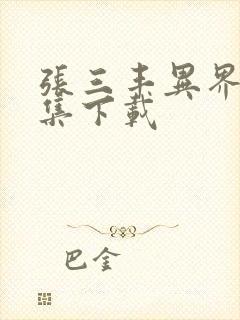 張三丰異界
集下載
巴金